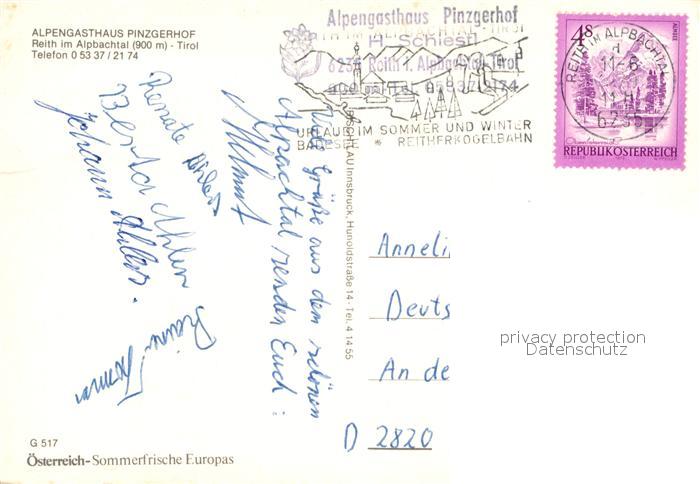 ALPENGASTHAUS PINZGERHOF
Reith im Alpbachtal (900 m) - Tirol
Telefon 0 53 37 / 21 74
Alpengasthaus Pinzgerhof
H. Schiestl
6235 Reith i. Alpbachtal-Tirol
Tel. 05337/2174
URLAUB IM SOMMER UND WINTER
BADESEE * REITHERKOGELBAHN
REITH IM ALPBACHTAL
11-6
6235
4S
REPUBLIK ÖSTERREICH
Viele Grüße aus dem schönen
Alpachtal senden Euch:
Helmut
Renate Ahlers
Berta Ahlers
Johann Ahlers
Rainer
AU Innsbruck, Hunoldstraße 14 - Tel. 4 14 55
Anneli
Deuts
An de
D 2820
privacy protection
Datenschutz
G 517
Österreich-Sommerfrische Europas